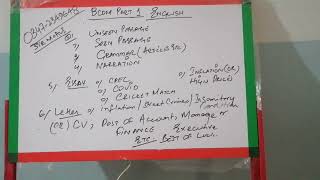 BCOM PART 1 ENGLISH
1/ UNSEEN PASSAGE
2/ SEEN PASSAGE
3/ GRAMMAR
4/ NARRATION
5/ ESSAY o/ CPEC
o/ COVID
o/ CRICKET MATCH
o/ INFLATION (OR)
HIGH PRICES
6/ Letter o/ Inflation / Street Crimes /
(OR) CV; Post of Account, Manager or
FINANCE Executive
ETC. BEST OF LUCK.